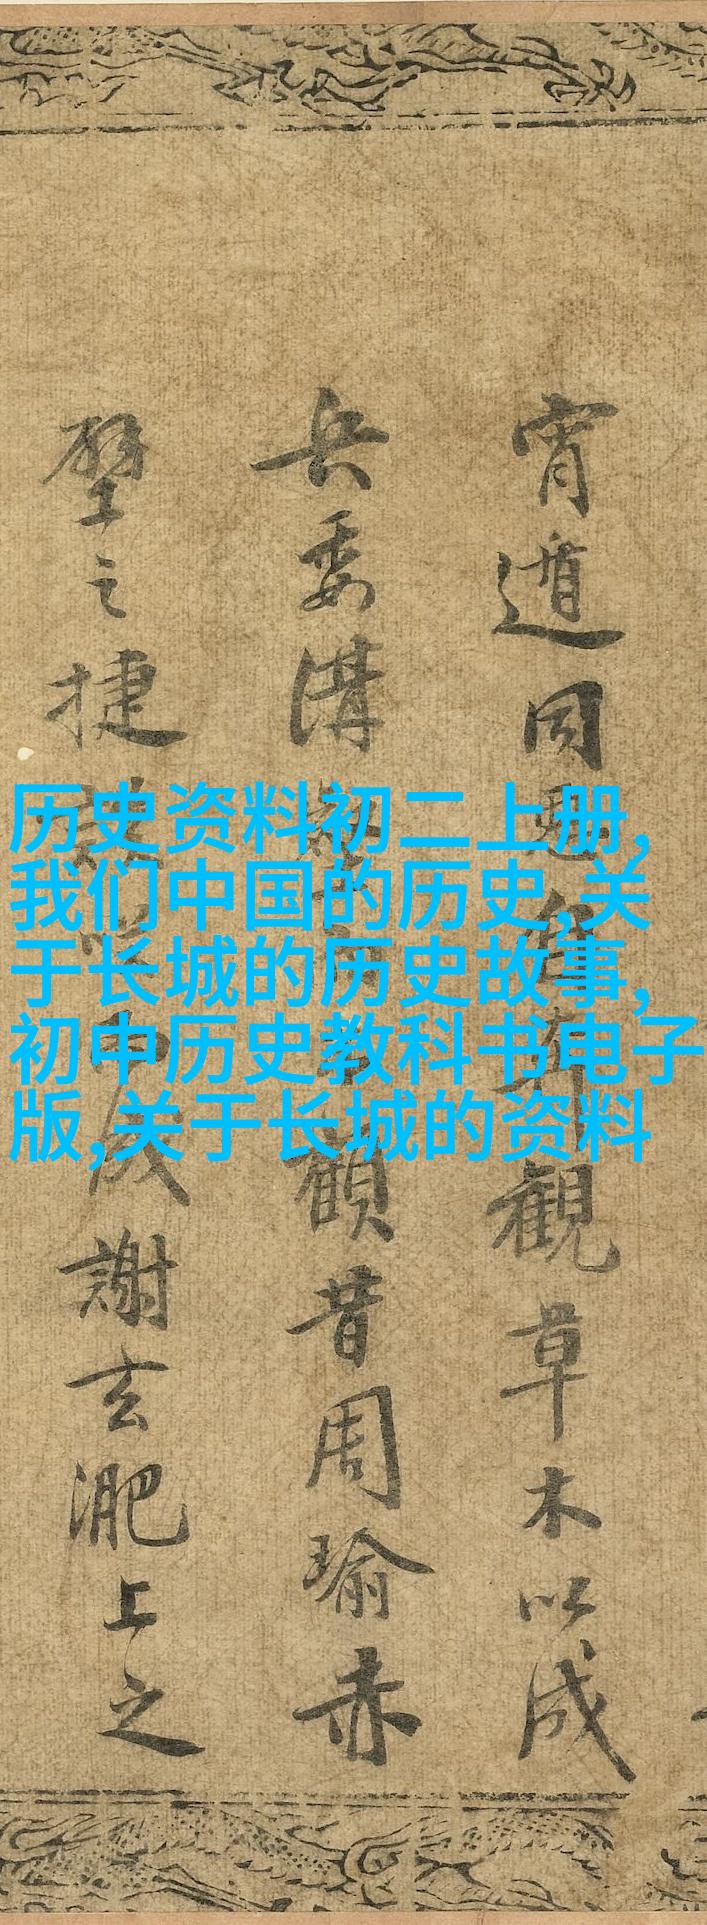 宵遁同惡奔觀草木以成
兵委溝壑而不顧昔周瑜赤
壁之捷談笑而成謝玄淝上之
历史资料初二上册,
我们中国的历史,关
于长城的历史故事,
初中历史教科书电子
版,关于长城的资料